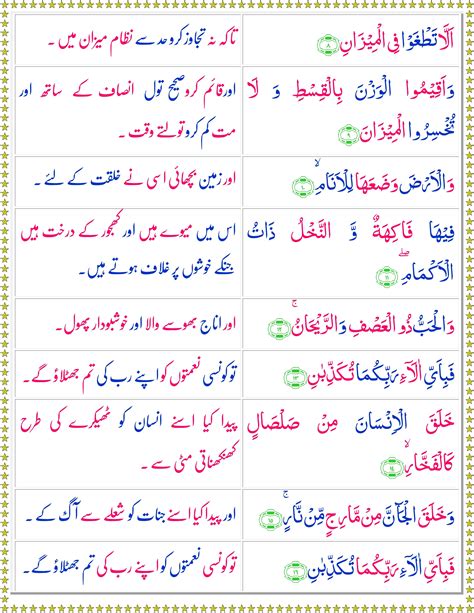 اَلَّا تَطْغَوْا فِی الْمِیْزَانِ ۸
تاکہ نہ تجاوز کرو حد سے نظام میزان میں ۔
وَاَقِیْمُوا الْوَزْنَ بِالْقِسْطِ وَ لَا
تُخْسِرُوا الْمِیْزَانَ ۹
اور قائم کرو صحیح تول انصاف کے ساتھ اور
مت کم کرو تولتے وقت ۔
وَالْاَرْضَ وَضَعَهَا لِلْاَنَامِ ۙ ۱۰
اور زمین بچھائی اسی نے خلقت کے لئے ۔
فِیْهَا فَاكِهَةٌ وَّ النَّخْلُ ذَاتُ
الْاَكْمَامِ ۖ ۱۱
اس میں میوے ہیں اور کھجور کے درخت ہیں
جنکے خوشوں پر غلاف ہوتے ہیں۔
وَالْحَبُّ ذُو الْعَصْفِ وَالرَّیْحَانُ ۚ ۱۲
اور اناج بھوسے والا اور خوشبودار پھول۔
فَبِاَیِّ اٰلَآءِ رَبِّكُمَا تُكَذِّبٰنِ ۱۳
تو کونسی نعمتوں کو اپنے رب کی تم جھٹلاؤ گے۔
خَلَقَ الْاِنْسَانَ مِنْ صَلْصَالٍ
كَالْفَخَّارِ ۙ ۱۴
پیدا کیا اسنے انسان کو ٹھیکرے کی طرح
کھنکھناتی مٹی سے ۔
وَخَلَقَ الْجَآنَّ مِنْ مَّارِجٍ مِّنْ نَّارٍ ۚ ۱۵
اور پیدا کیا اسنے جنات کو شعلے سے آگ کے ۔
فَبِاَیِّ اٰلَآءِ رَبِّكُمَا تُكَذِّبٰنِ ۱۶
تو کونسی نعمتوں کو اپنے رب کی تم جھٹلاؤ گے۔